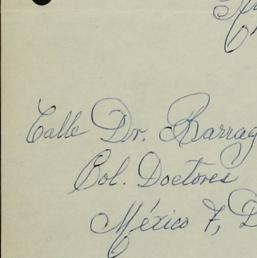 Calle Dr. Barrag
Col. Doctores
México 7, D